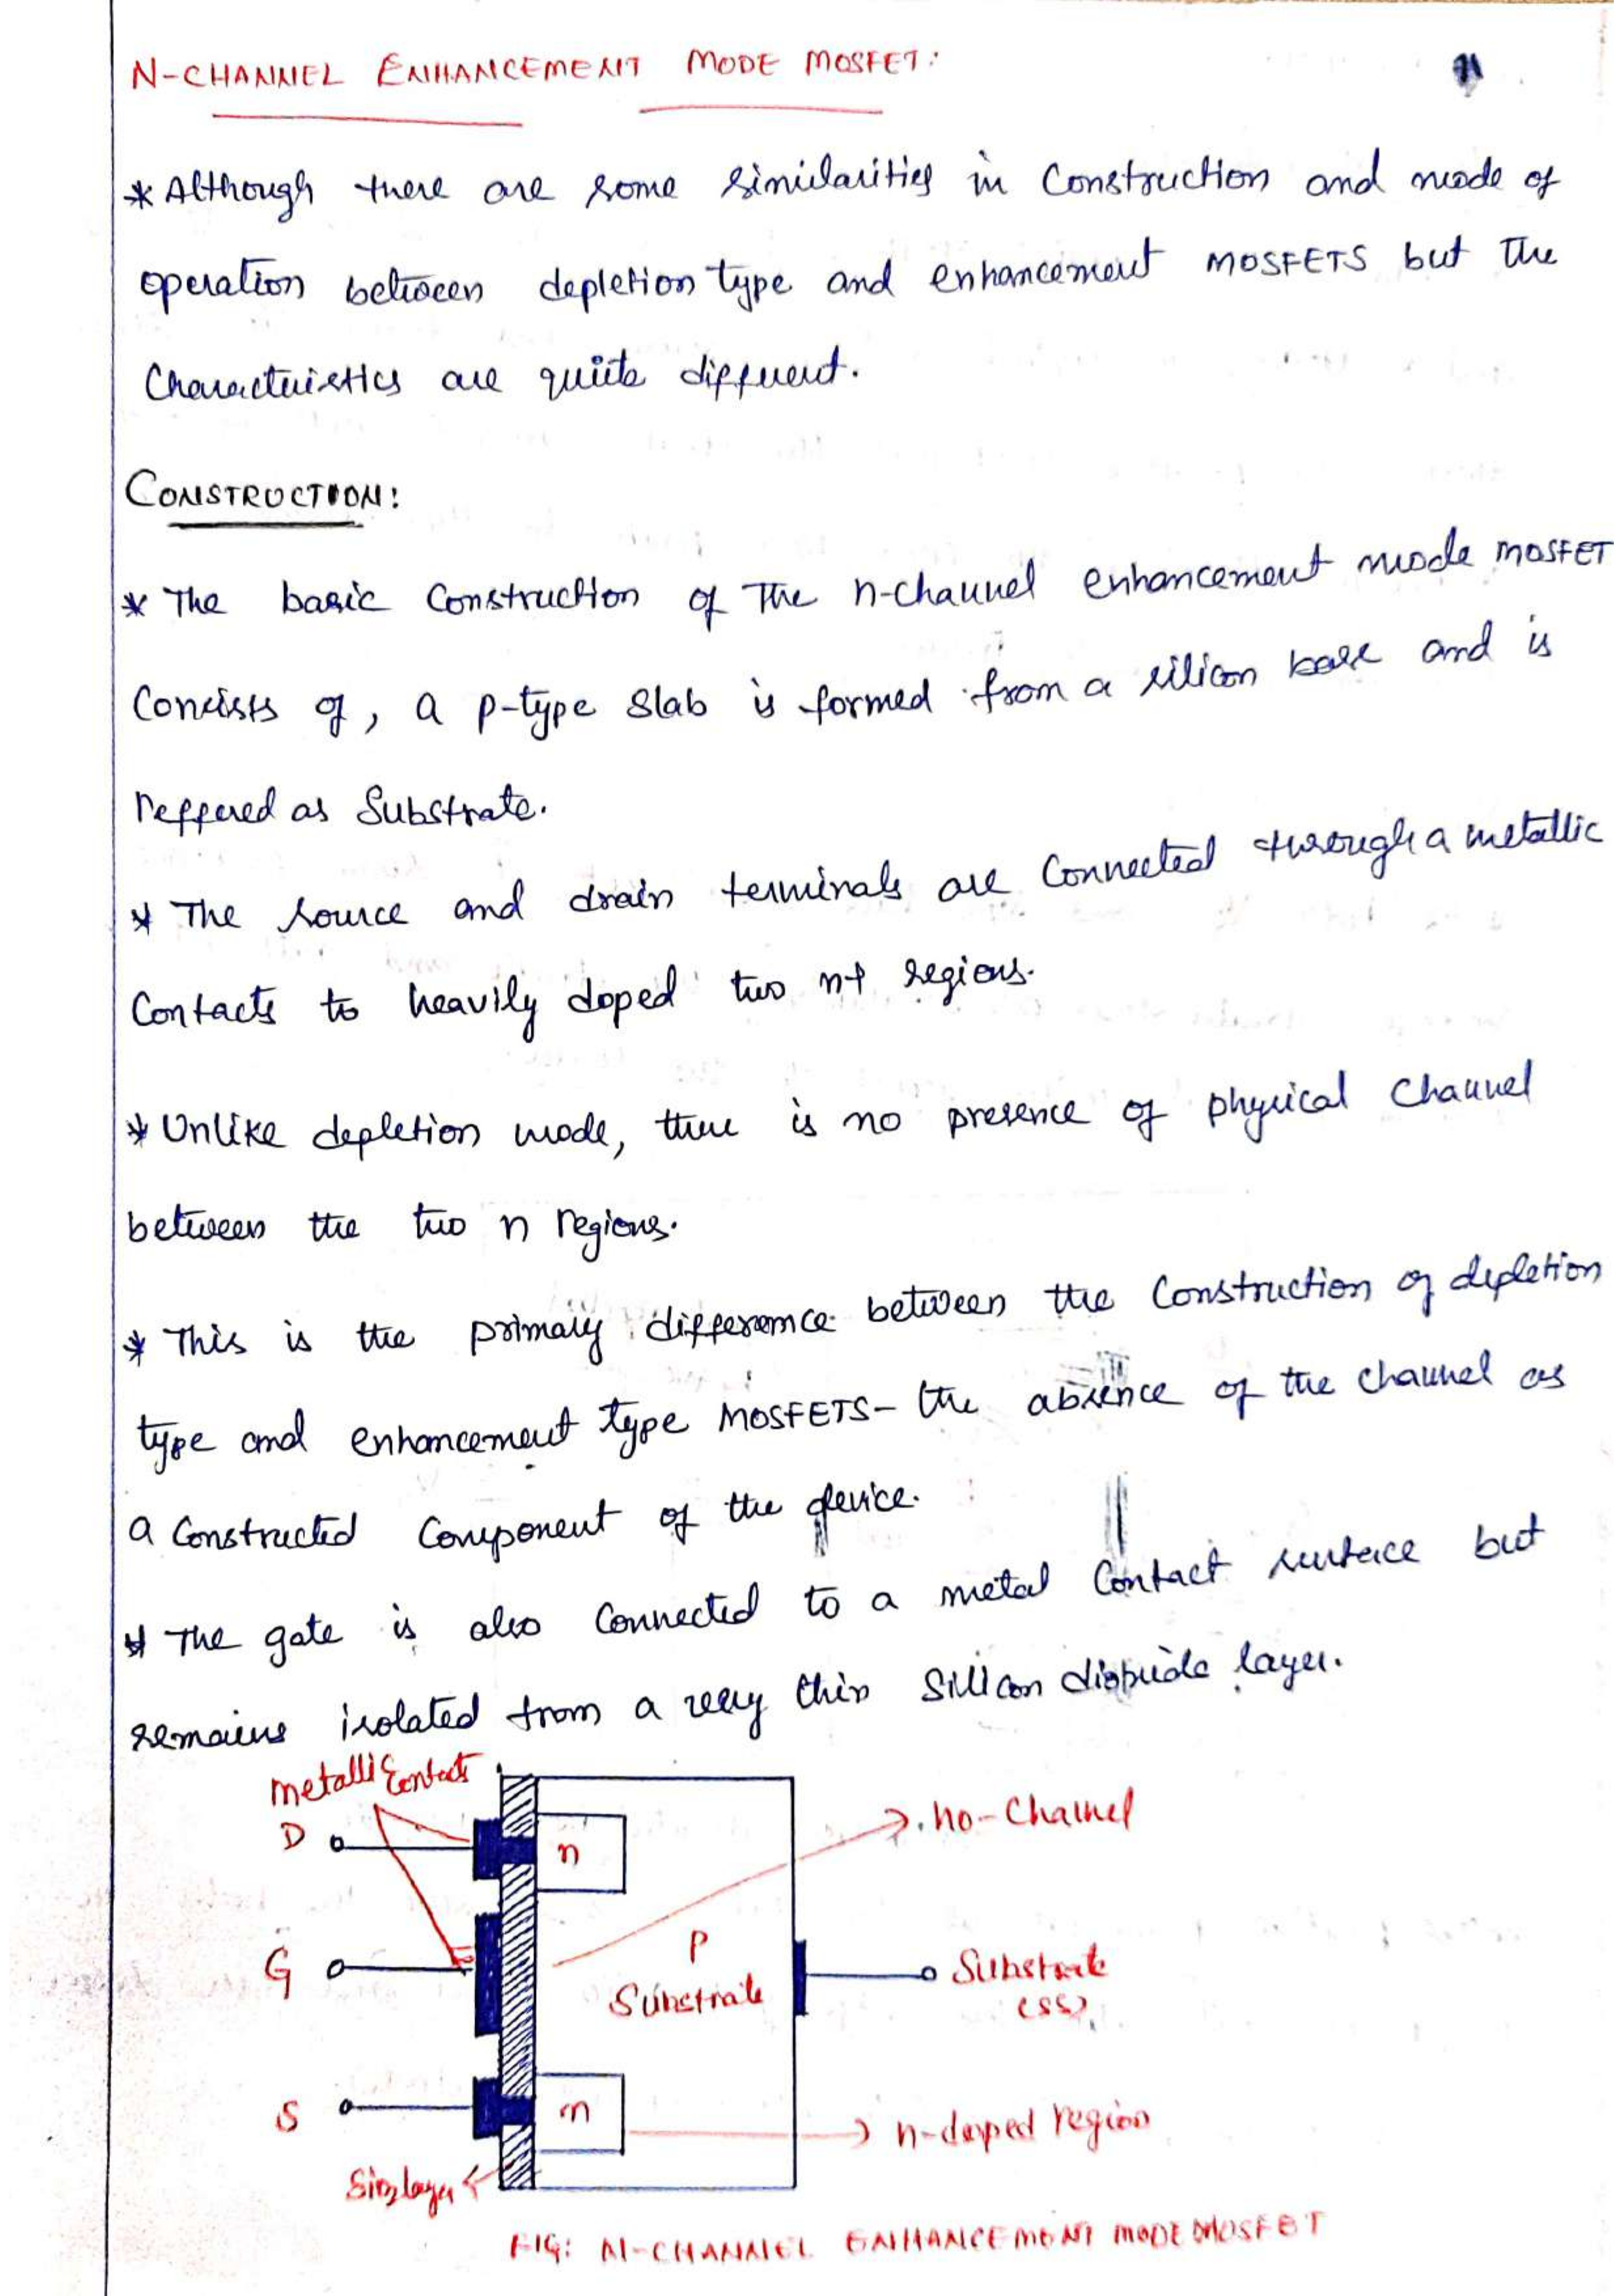 N-CHANNEL ENHANCEMENT MODE MOSFET:
* Although there are some similarities in Construction and mode of
operation between depletion type and enhancement MOSFETS but the
Characteristics are quite different.
CONSTRUCTION:
* The basic Construction of The n-channel enhancement mode MOSFET
Consists of, a p-type Slab is formed from a silicon base and is
reffered as Substrate.
* The source and drain terminals are Connected through a metallic
Contacts to heavily doped two n+ regions.
* Unlike depletion mode, there is no presence of physical Channel
between the two n regions.
* This is the primary difference between the Construction of depletion
type and enhancement type MOSFETS- the absence of the channel as
a Constructed Component of the device.
* The gate is also Connected to a metal Contact surface but
remains isolated from a very thin Silicon dioxide layer.
metallic Contacts
D
n
no-Channel
G
P
Substrate
Substrate
(SS)
S
n
n-doped region
Sio2 layer
FIG: N-CHANNEL ENHANCEMENT MODE MOSFET